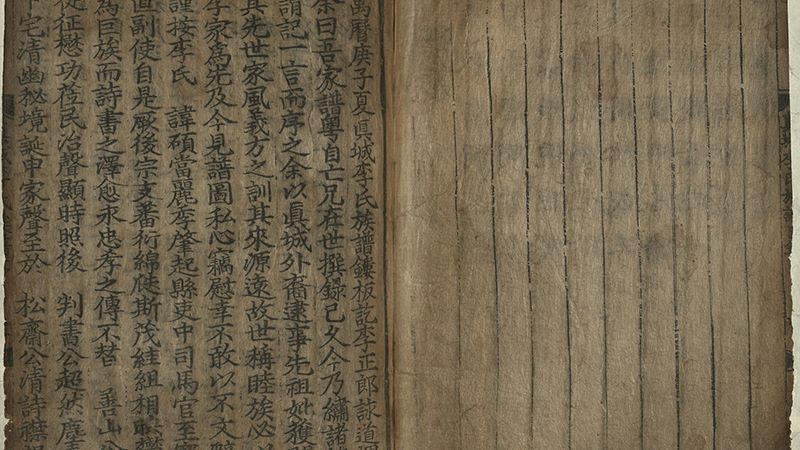 萬曆庚子夏眞城李氏族譜鏤板訖李正郎詠道
余曰吾家譜粤自亡兄在世撰錄已久今乃繡諸
謂記一言而序之余以眞城外裔逮事先祖妣獲
其先世家風義方之訓其來源遠故世稱睦族必
李家爲先及今見譜圖私心竊慰幸不敢以不文
謹按李氏 諱碩當麗季肇起縣吏中司馬官至
直副使自是厥後宗支蕃衍綿瓞斯茂絓組相聯
爲巨族而詩書之澤愈永忠孝之傳不替 善山
從征懋功莅民治聲顯時照後 判書公超然塵
卜宅清幽秘境誕申家聲至於 松齋公清詩